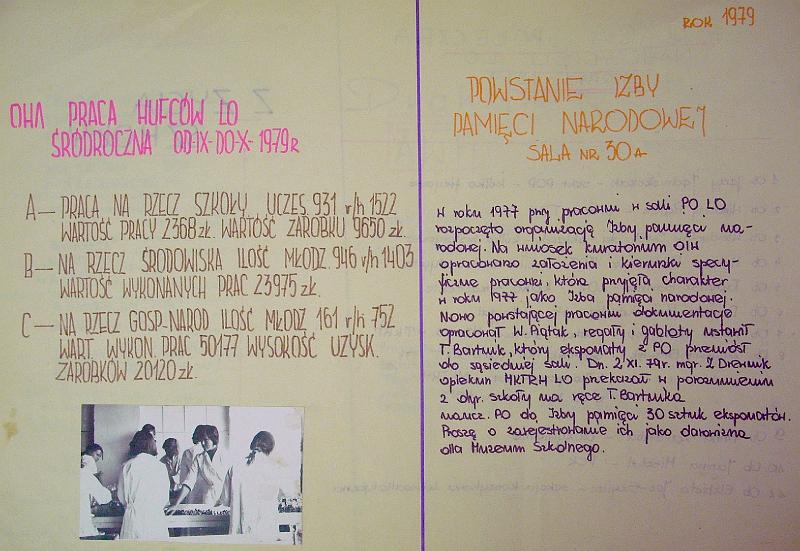 OHA PRACA HUFCÓW LO
ŚRÓDROCZNA OD-IX-DO-X-1979r
A — PRACA NA RZECZ SZKOŁY UCZES. 931 r/h 1522
WARTOŚĆ PRACY 2368 zł. WARTOŚĆ ZAROBKU 9650 zł.
B — NA RZECZ ŚRODOWISKA ILOŚĆ MŁODZ. 946 r/h 1403
WARTOŚĆ WYKONANYCH PRAC 23975 zł.
C — NA RZECZ GOSP-NAROD ILOŚĆ MŁODZ 161 r/h 752
WART. WYKON. PRAC 50177 WYSOKOŚĆ UZYSK.
ZAROBKÓW 20120 zł.
ROK 1979
POWSTANIE IZBY
PAMIĘCI NARODOWEJ
SALA NR 30A
W roku 1977 przy pracowni w sali PO LO
rozpoczęto organizację Izby pamięci na-
rodowej. Na wniosek kuratorium OIW
opracowano założenia i kierunki specy-
ficzne pracowni, która przyjęła charakter
w roku 1977 jako Izba pamięci narodowej.
Nowo powstającej pracowni dokumentację
opracował W. Piątak, regały i gabloty ustawił
T. Bartnik, który eksponaty z PO przeniósł
do sąsiedniej sali. Dn. 2 XI. 79r. mgr. Z Drewnik
opiekun MKTRH LO przekazał w porozumieniu
z dyr. szkoły na ręce T. Bartnika
naucz. PO do Izby pamięci 30 sztuk eksponatów.
Proszę o zarejestrowanie ich jako darowizna
dla Muzeum Szkolnego.